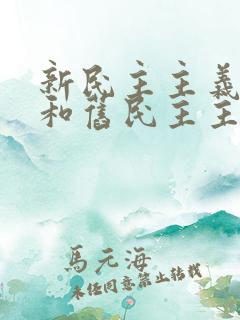 新民主主義
和舊民主主
馬元海
未经同意禁止转载